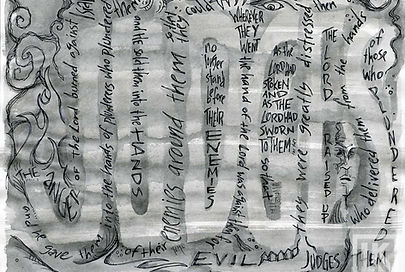 THE ANGER
of the Lord burned against
and he gave them
into the hands of plunderers who plundered
them
and he sold them into the
HANDS
of their
enemies around them
they
could
no longer stand before their
ENEMIES
WHEREVER THEY WENT
the hand of the Lord was against
AS THE LORD HAD SPOKEN AND AS THE LORD HAD SWORN TO THEM
so that
they were greatly distressed
EVIL
Then
THE LORD
RAISED UP
JUDGES
who delivered them
from the hands
of those who
PLUNDERED
THEM